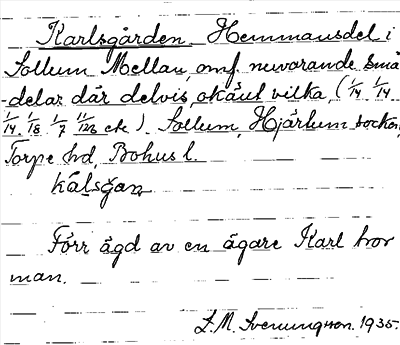 Karlsgården. Hemmansdel i
Sollum Mellan, omf. nuvarande små
-delar där delvis okänt vilka, (1/14. 1/14.
1/14. 1/18. 1/7 11/128 etc.). Sollum, Hjärtum socken,
Torpe hd, Bohus l.
Förr ägd av en ägare Karl tror
man.
L.M. Svenungsson. 1935.